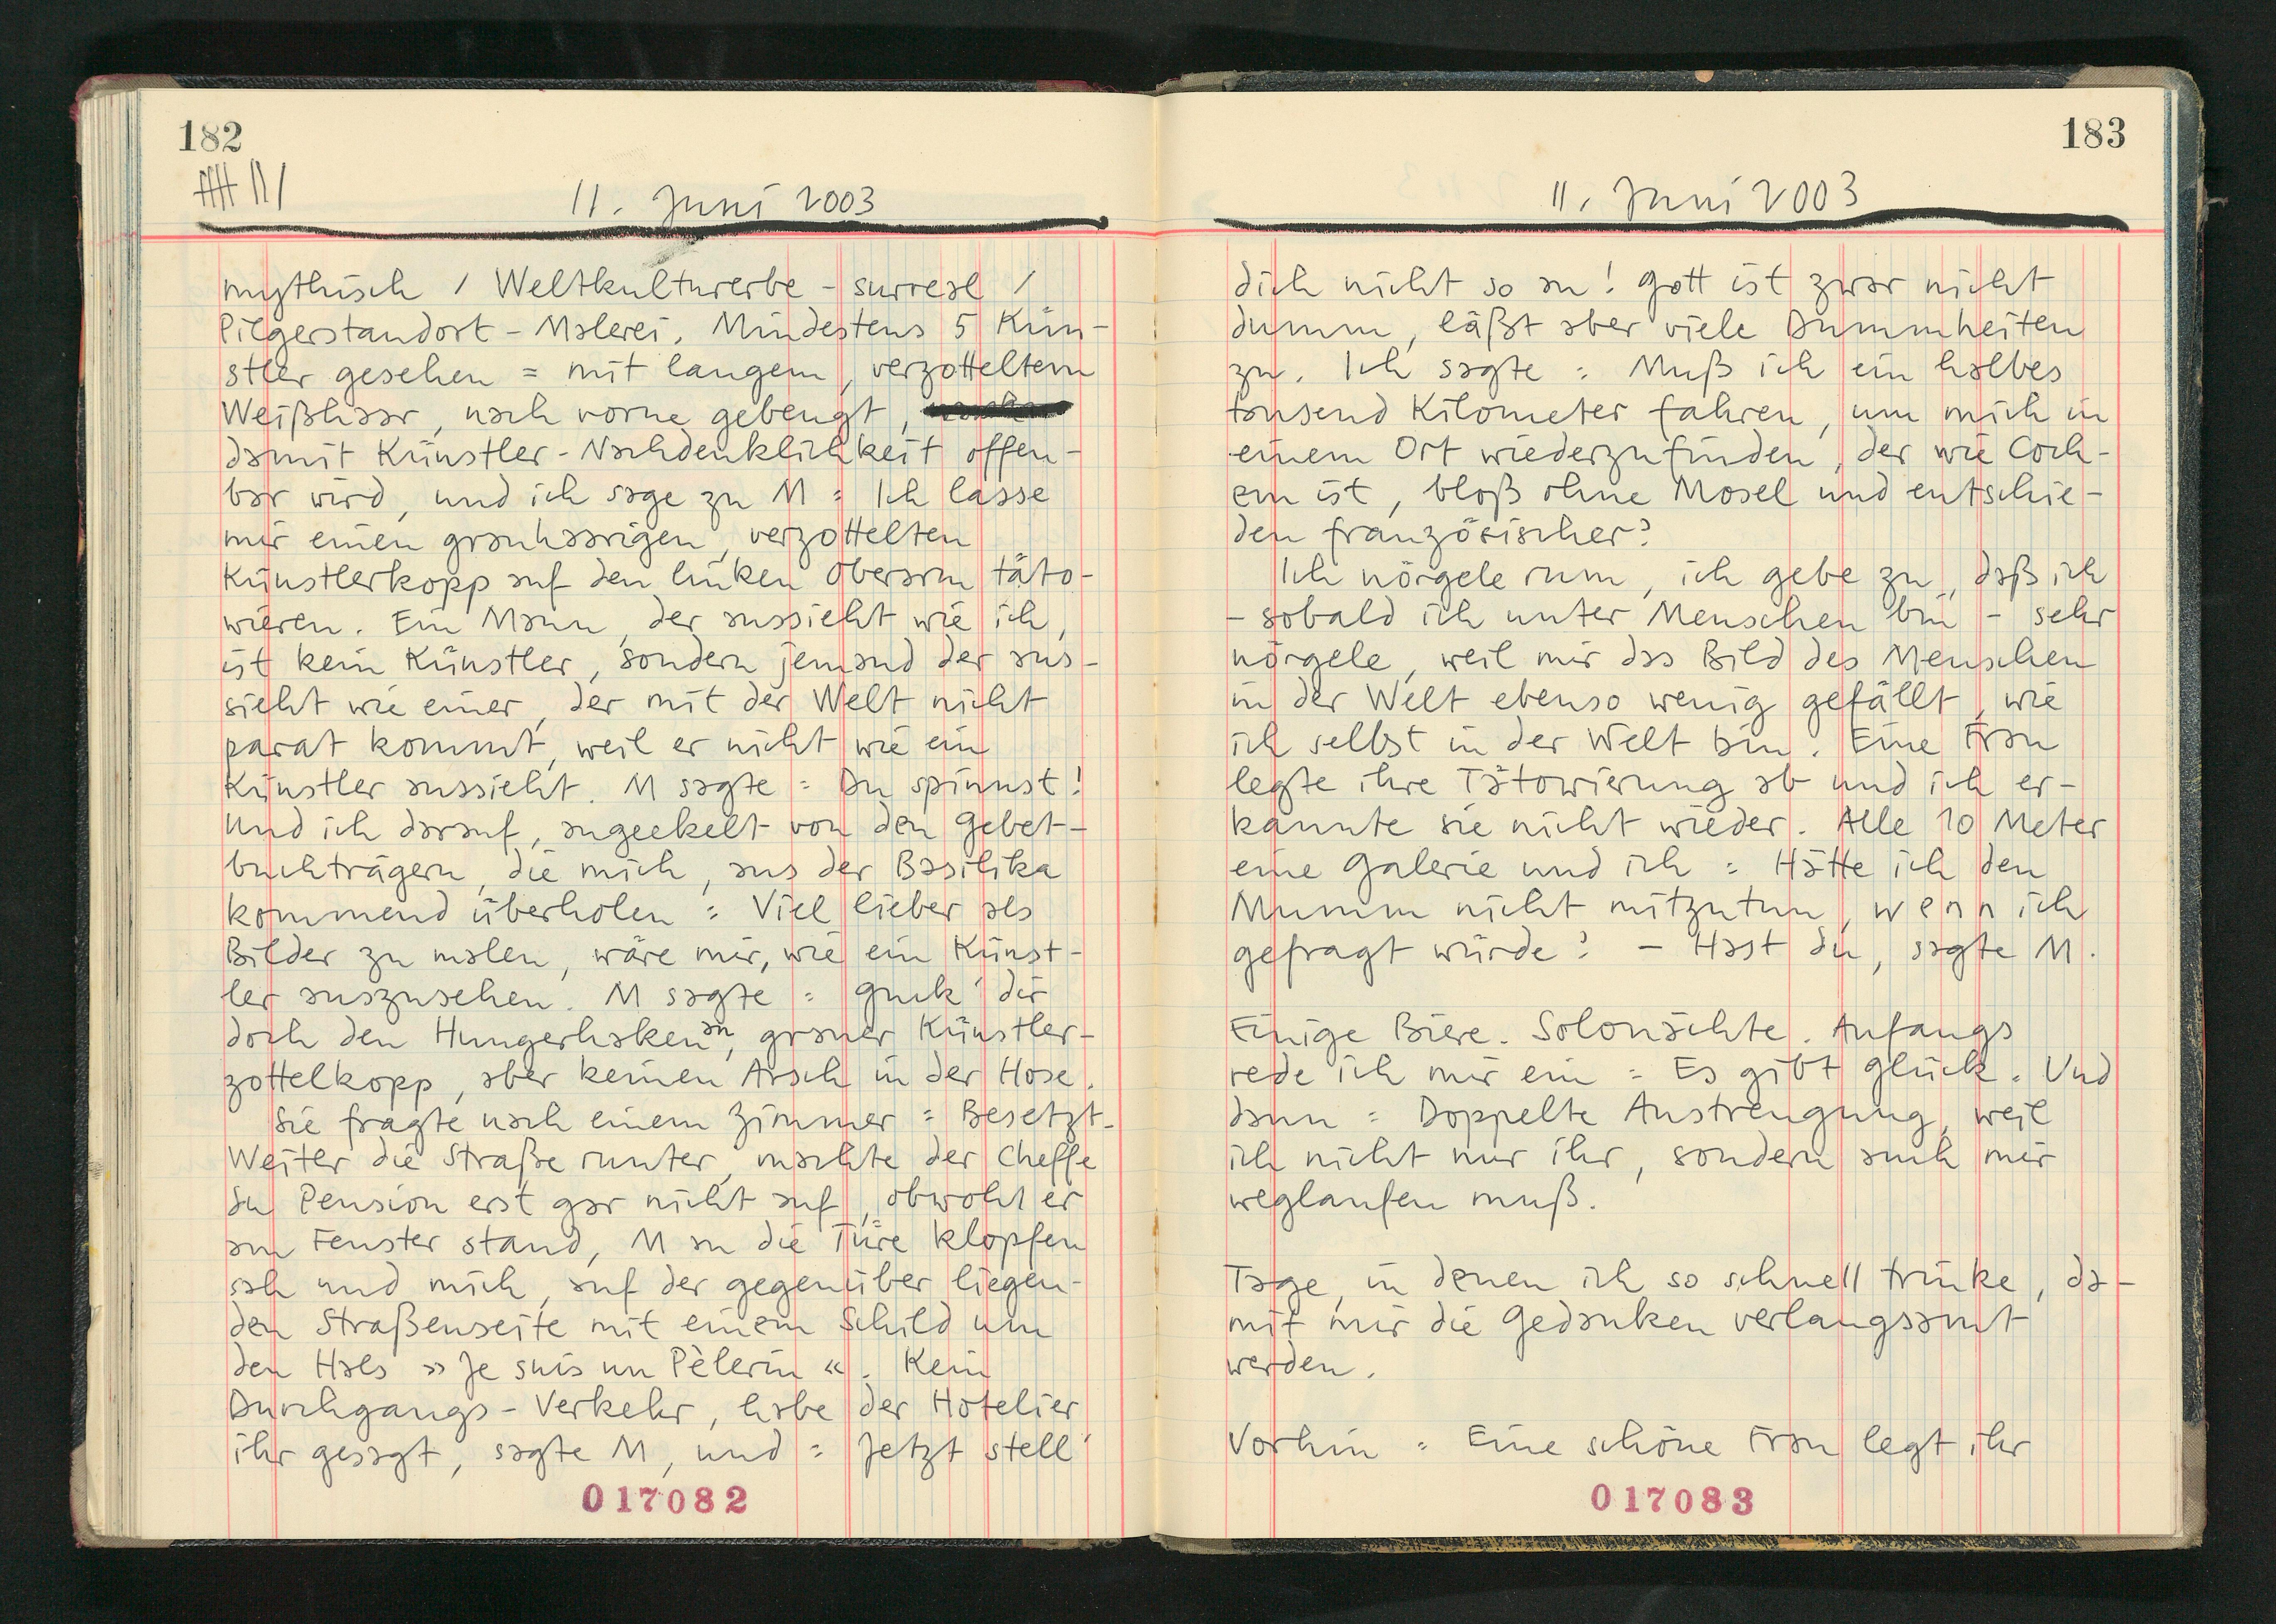 182
11. Juni 2003
mythisch / Weltkulturerbe - surreal /
Pilgerstandort - Malerei. Mindestens 5 Kün-
stler gesehen = mit langem, verzotteltem
Weißhaar, nach vorne gebeugt,
damit Künstler-Nachdenklichkeit offen-
bar wird, und ich sage zu M = Ich lasse
mir einen grauhaarigen, verzottelten
Künstlerkopp auf den linken Oberarm täto-
wieren. Ein Mann, der aussieht wie ich,
ist kein Künstler, sondern jemand der aus-
sieht wie einer, der mit der Welt nicht
parat kommt, weil er nicht wie ein
Künstler aussieht. M sagte = Du spinnst!
Und ich darauf, angeekelt von den Gebet-
buchträgern, die mich, aus der Basilika
kommend überholen = Viel lieber als
Bilder zu malen, wäre mir, wie ein Künst-
ler auszusehen. M sagte = Guck' dir
doch den Hungerhaken an, grauer Künstler-
zottelkopp, aber keinen Arsch in der Hose.
Sie fragte nach einem Zimmer = Besetzt.
Weiter die Straße runter, machte der Cheffe
du Pension erst gar nicht auf, obwohl er
am Fenster stand, M an die Türe klopfen
sah und mich, auf der gegenüber liegen-
den Straßenseite mit einem Schild um
den Hals »Je suis un Pèlerin«. Kein
Durchgangs-Verkehr, habe der Hotelier
ihr gesagt, sagte M, und = Jetzt stell'
017082
183
11. Juni 2003
dich nicht so an! Gott ist zwar nicht
dumm, läßt aber viele Dummheiten
zu. Ich sagte = Muß ich ein halbes
tausend Kilometer fahren, um mich in
einem Ort wiederzufinden, der wie Coch-
em ist, bloß ohne Mosel und entschie-
den französischer?
Ich nörgele rum, ich gebe zu, daß ich
- sobald ich unter Menschen bin - sehr
nörgele, weil mir das Bild des Menschen
in der Welt ebenso wenig gefällt, wie
ich selbst in der Welt bin. Eine Frau
legte ihre Tätowierung ab und ich er-
kannte sie nicht wieder. Alle 10 Meter
eine Galerie und ich = Hätte ich den
Mumm nicht mitzutun, wenn ich
gefragt würde? - Hast du, sagte M.
Einige Biere. Solonächte. Anfangs
rede ich mir ein = Es gibt Glück. Und
dann = Doppelte Anstrengung, weil
ich nicht nur ihr, sondern auch mir
weglaufen muß.
Tage, in denen ich so schnell trinke, da-
mit mir die Gedanken verlangsamt
werden.
Vorhin = Eine schöne Frau legt ihr
017083